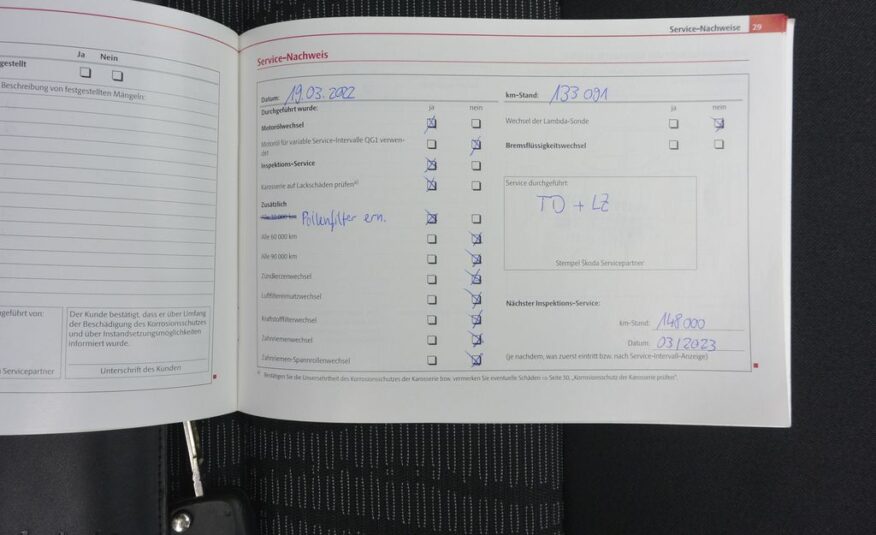 Ja Nein
gestellt
Beschreibung von festgestellten Mängeln:
geführt von:
Servicepartner
Der Kunde bestätigt, dass er über Umfang
der Beschädigung des Korrosionsschutzes
und über Instandsetzungsmöglichkeiten
informiert wurde.
Unterschrift des Kunden
Service-Nachweise 29
Service-Nachweis
Datum: 19.03.2022
Durchgeführt wurde: ja nein
Motorölwechsel
Motoröl für variable Service-Intervalle QG1 verwen-
det
Inspektions-Service
Karosserie auf Lackschäden prüfen a)
Zusätzlich
Alle 30 000 km Pollenfilter ern.
Alle 60 000 km
Alle 90 000 km
Zündkerzenwechsel
Luftfiltereinsatzwechsel
Kraftstofffilterwechsel
Zahnriemenwechsel
Zahnriemen-Spannrollenwechsel
km-Stand: 133 091
ja nein
Wechsel der Lambda-Sonde
Bremsflüssigkeitswechsel
Service durchgeführt:
TD + LZ
Stempel Škoda Servicepartner
Nächster Inspektions-Service:
km-Stand: 148 000
Datum: 03/2023
(je nachdem, was zuerst eintritt bzw. nach Service-Intervall-Anzeige)
a) Bestätigen Sie die Unversehrtheit des Korrosionsschutzes der Karosserie bzw. vermerken Sie eventuelle Schäden ⇒ Seite 50, „Korrosionsschutz der Karosserie prüfen".